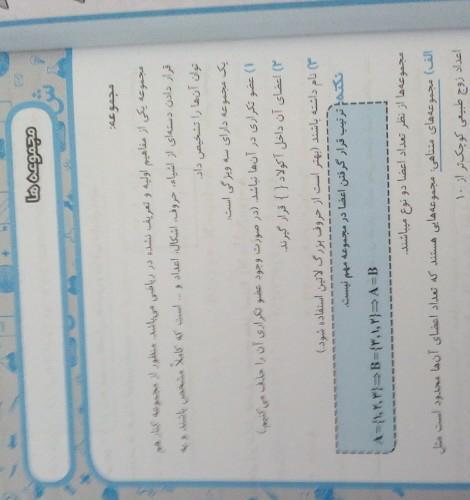 مجموعه‌ها
مجموعه:
مجموعه یکی از مفاهیم اولیه و تعریف نشده در ریاضی می‌باشد. منظور از مجموعه کنار هم
قرار دادن دسته‌ای از اشیاء، حروف، اشکال، اعداد و ... است که کاملاً مشخص باشند و به
توان آن‌ها را تشخیص داد.
یک مجموعه دارای سه ویژگی است.
۱) عضو تکراری در آن‌ها نباشد (در صورت وجود عضو تکراری آن را حذف می کنیم.)
۲) اعضای آن داخل آکولاد { } قرار گیرند.
۳) نام داشته باشند (بهتر است از حروف بزرگ لاتین استفاده شود.)
نکته: ترتیب قرار گرفتن اعضا در مجموعه مهم نیست.
A = {۱,۲,۳} ⇒ B = {۳,۱,۲} ⇒ A = B
مجموعه‌ها از نظر تعداد اعضا دو نوع میباشند.
الف) مجموعه‌های متناهی: مجموعه‌هایی هستند که تعداد اعضای آن‌ها محدود است مثل
اعداد زوج طبیعی کوچک‌تر از ۱۰